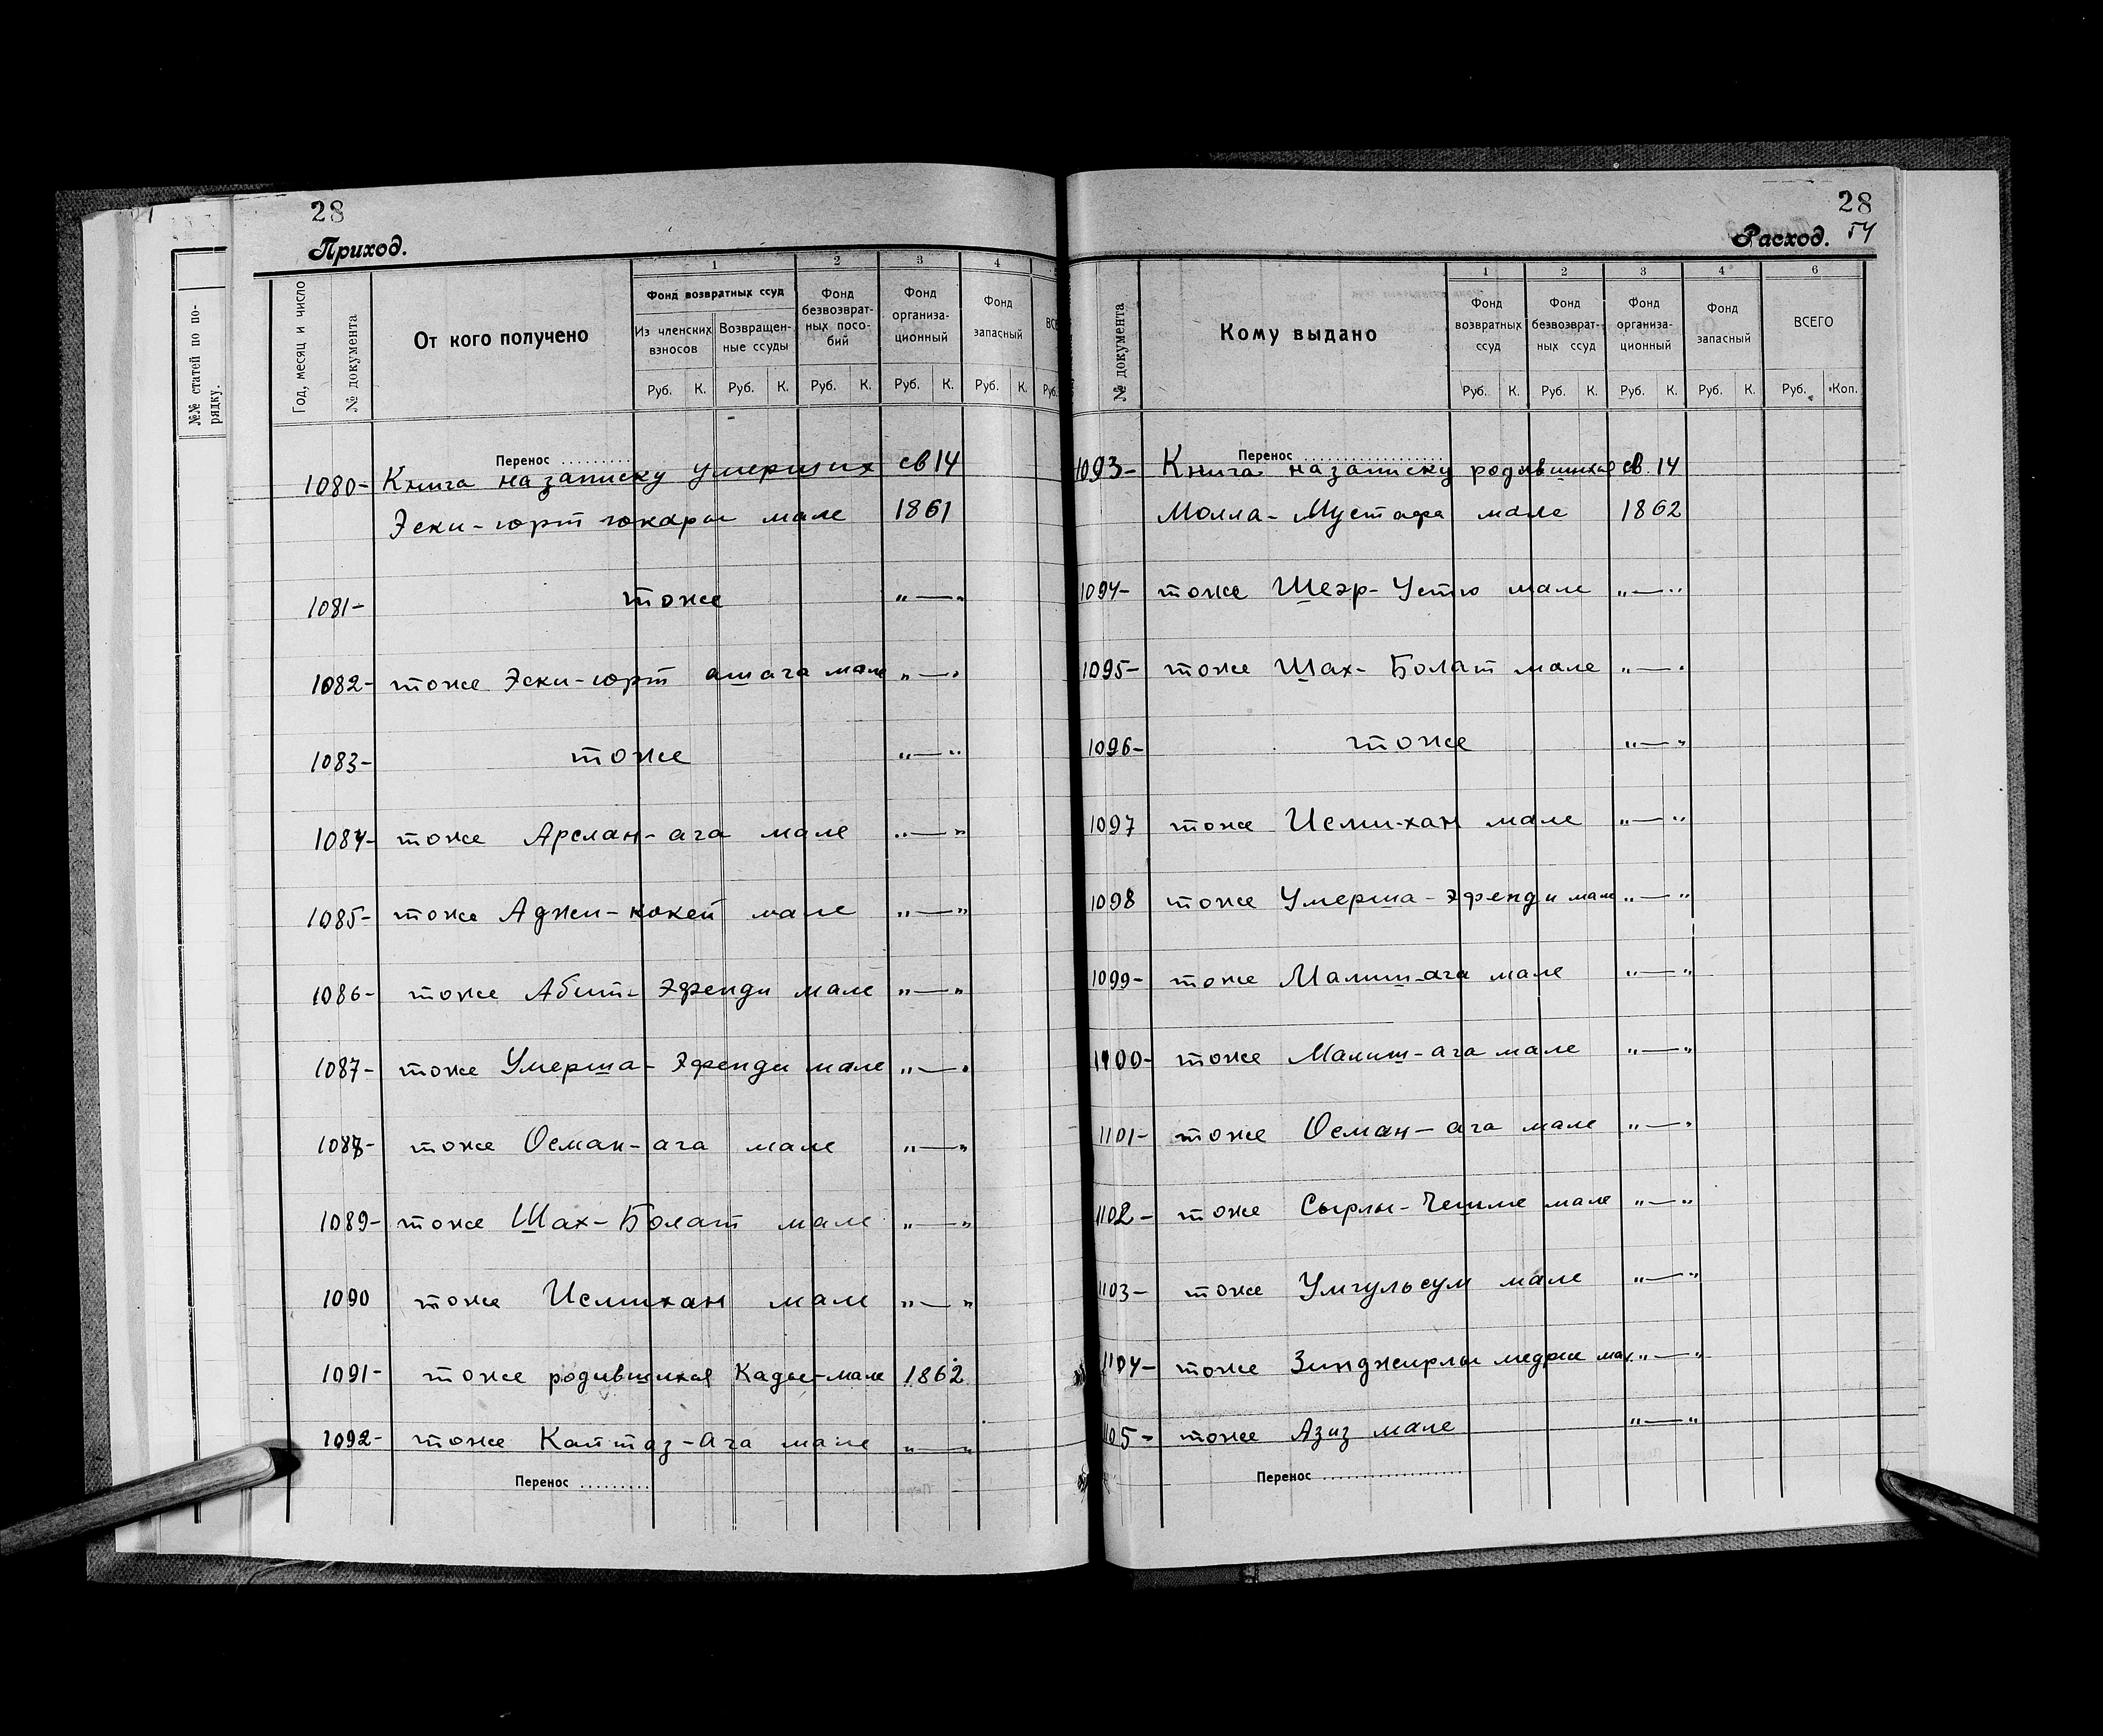 28
Приход.
№№ статей по по-
рядку.
Год, месяц и число
№ документа
От кого получено
1
Фонд возвратных ссуд
Из членских
взносов
Возвращен-
ные ссуды
2
Фонд
безвозврат-
ных посо-
бий
3
Фонд
организа-
ционный
4
Фонд
запасный
Руб. К. Руб. К. Руб. К. Руб. К. Руб. К. Руб.
Перенос
1080- Книга на записку умерших св 14
Эски-юрт юкары мале 1861
1081- тоже „—„
1082- тоже Эски-юрт ашага мале „—„
1083- тоже „—„
1084- тоже Арслан-ага мале „—„
1085- тоже Аджи-кокей мале „—„
1086- тоже Абит-Эфенди мале „—„
1087- тоже Умерша-Эфенди мале „—„
1088- тоже Осман-ага мале „—„
1089- тоже Шах-Болат мале „—„
1090 тоже Исмихан мале „—„
1091- тоже родившихся Кады-мале 1862
1092- тоже Кайтаз-Ага мале „—„
Перенос
28
54
Расход.
№ документа
Кому выдано
1
Фонд
возвратных
ссуд
2
Фонд
безвозврат-
ных ссуд
3
Фонд
организа-
ционный
4
Фонд
запасный
6
ВСЕГО
Руб. К. Руб. К. Руб. К. Руб. К. Руб. Коп.
Перенос
1093- Книга на записку родившихся св. 14
Молла-Мустафа мале 1862
1094- тоже Шеэр-Устю мале „—„
1095- тоже Шах-Болат мале „—„
1096- тоже „—„
1097 тоже Исми-хан мале „—„
1098 тоже Умерша-Эфенди мале „—„
1099- тоже Малиш-ага мале „—„
1100- тоже Малиш-ага мале „—„
1101- тоже Осман-ага мале „—„
1102- тоже Сырлы-Чешме мале „—„
1103- тоже Умгульсум мале „—„
1104- тоже Зинджирлы медрсе мал. „—„
1105- тоже Азиз мале „—„
Перенос